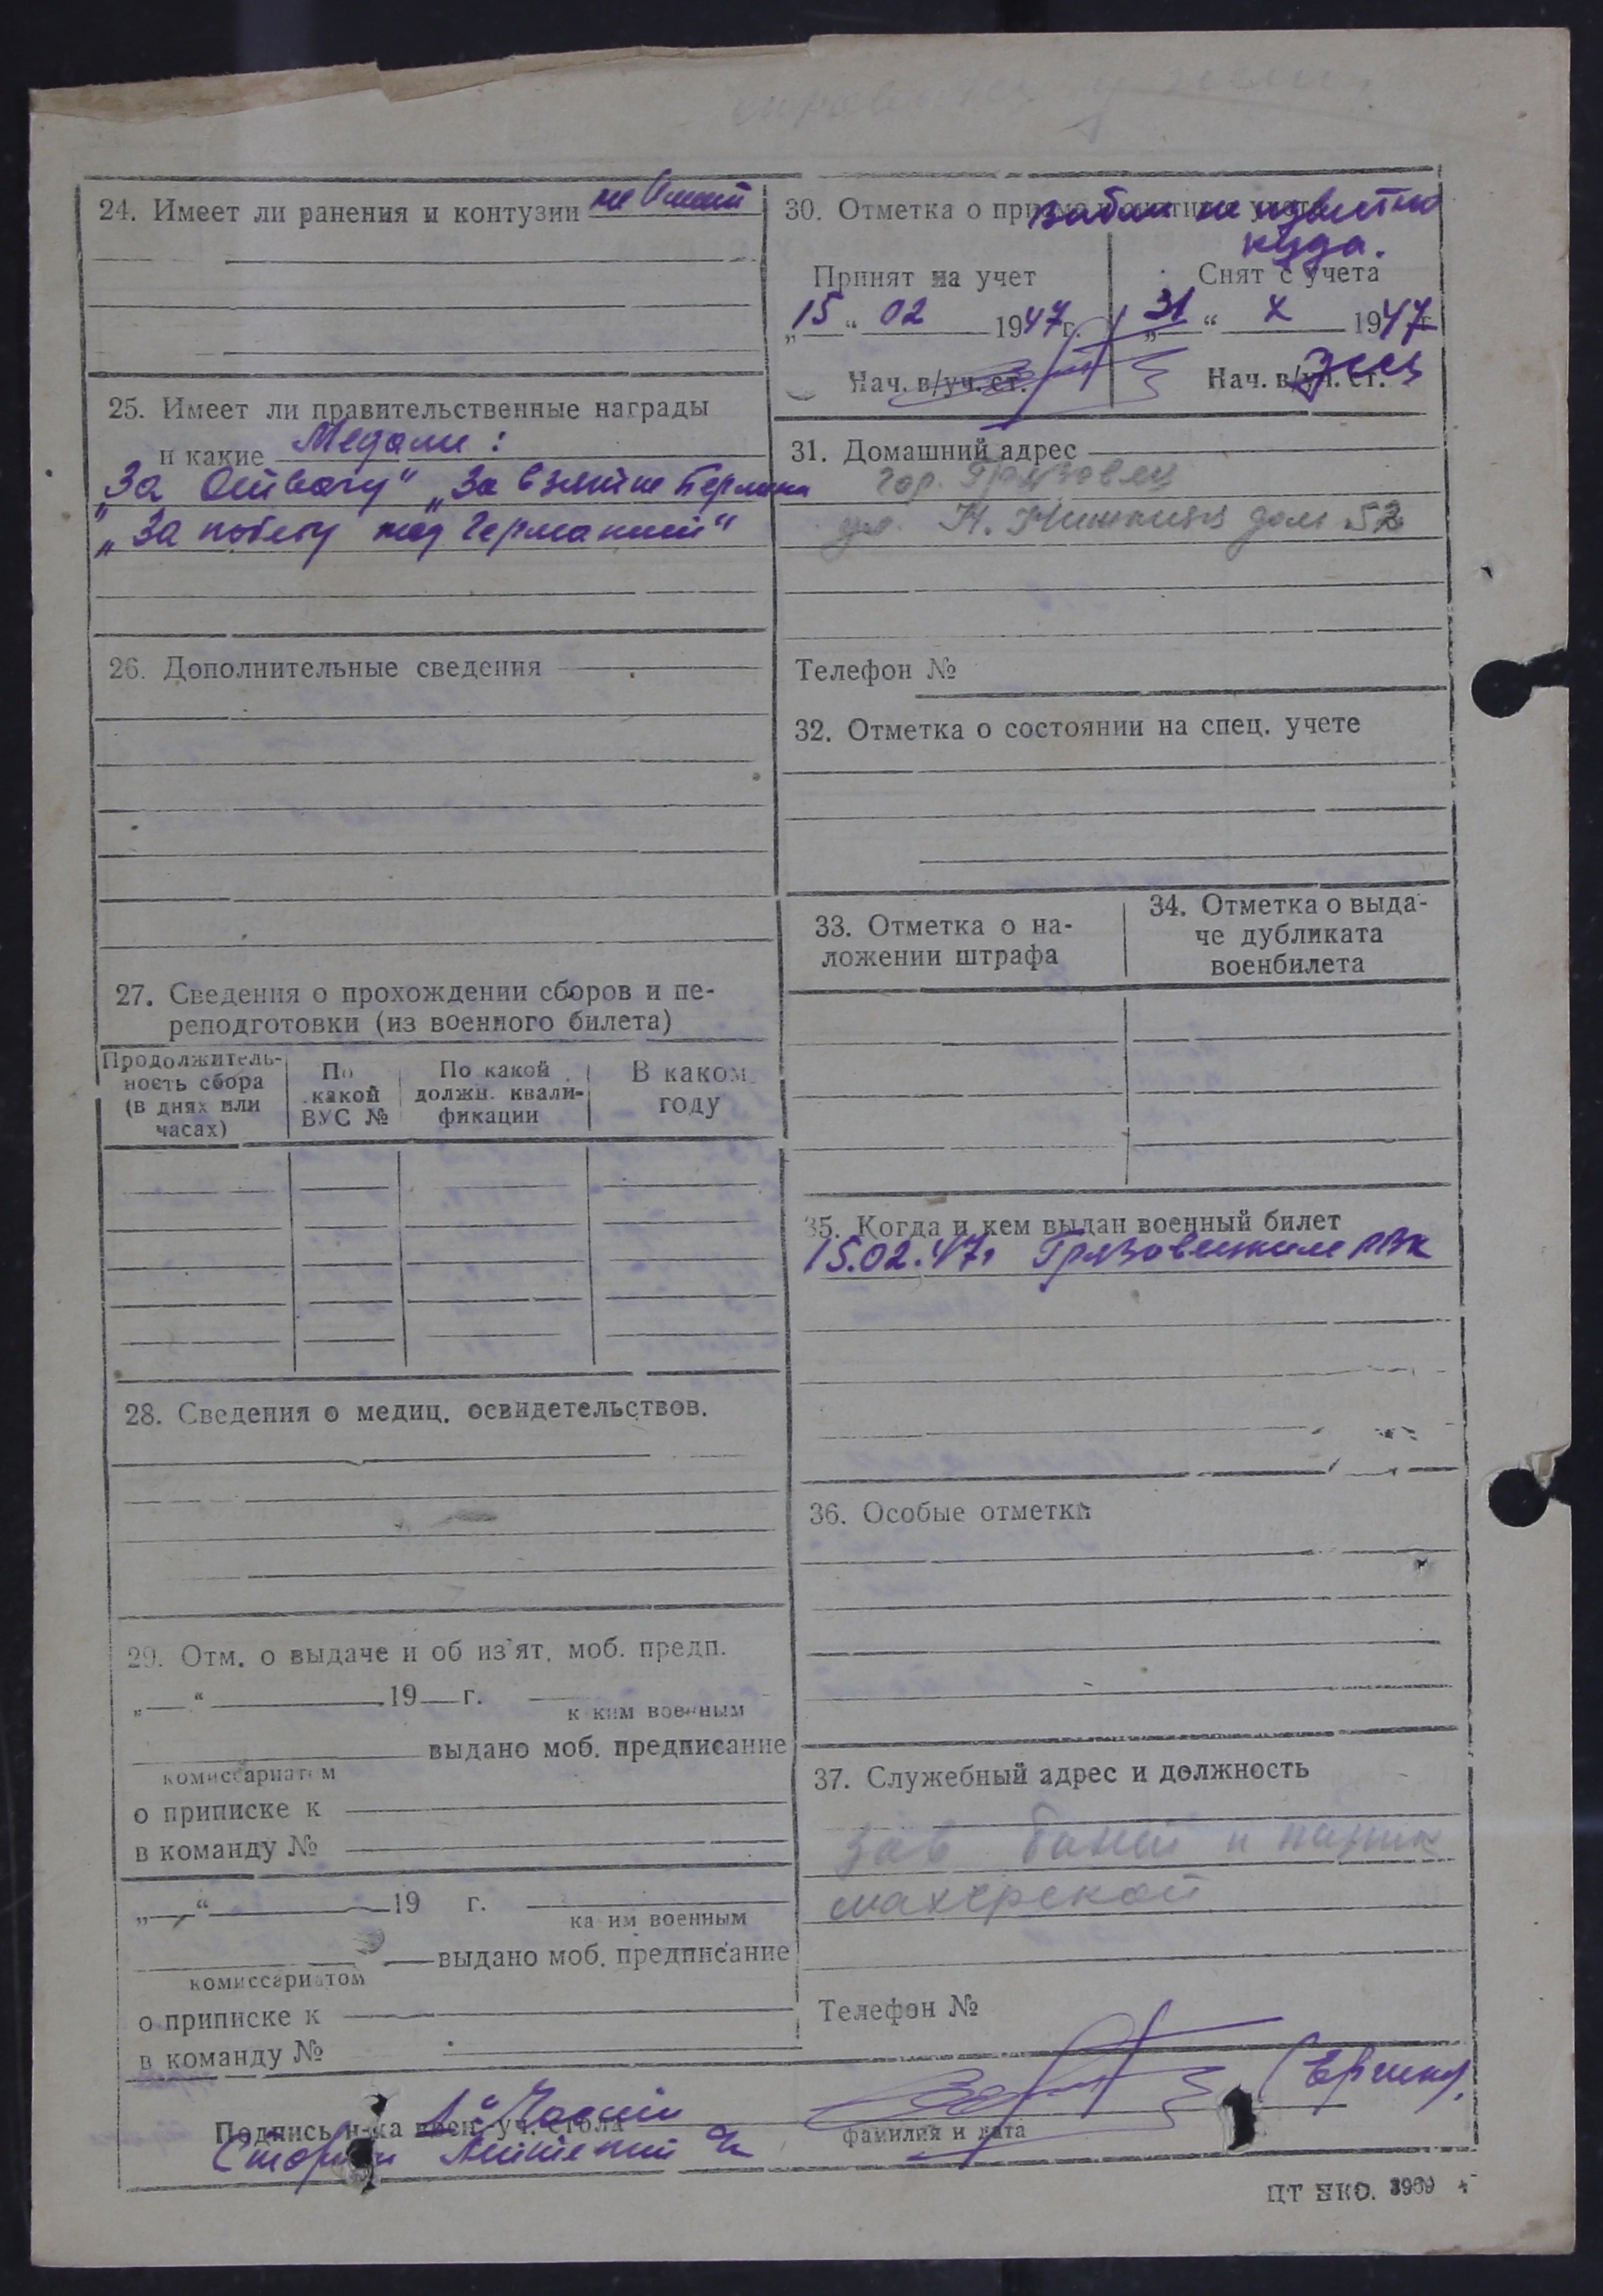 24. Имеет ли ранения и контузии не имеет
25. Имеет ли правительственные награды
и какие Медали:
„За Отвагу“ „За взятие Берлина
„За победу над Германией“
26. Дополнительные сведения
27. Сведения о прохождении сборов и пе-
реподготовки (из военного билета)
Продолжитель-
ность сбора
(в днях или
часах)
По
какой
ВУС №
По какой
должн. квали-
фикации
В каком
году
28. Сведения о медиц. освидетельствов.
29. Отм. о выдаче и об из'ят. моб. предп.
„ “ 19 г.
каким военным
выдано моб. предписание
комиссариатом
о приписке к
в команду №
„ “ 19 г.
каким военным
выдано моб. предписание
комиссариатом
о приписке к
в команду №
30. Отметка о приеме и снятии с учета
выбыл не известно
куда.
Принят на учет
„15“ 02 1947 г.
Нач. в/уч. ст.
Снят с учета
„31“ X 1947 г
Нач. в/уч. ст.
31. Домашний адрес
гор. Грязовец
ул. дом 52
Телефон №
32. Отметка о состоянии на спец. учете
33. Отметка о на-
ложении штрафа
34. Отметка о выда-
че дубликата
военбилета
35. Когда и кем выдан военный билет
15.02.47г Грязовецким РВК
36. Особые отметки
37. Служебный адрес и должность
Зав баней и парик
махерской
Телефон №
Подпись н-ка воен.-уч. стола
1й Части
фамилия и дата
ЦТ НКО. 3969